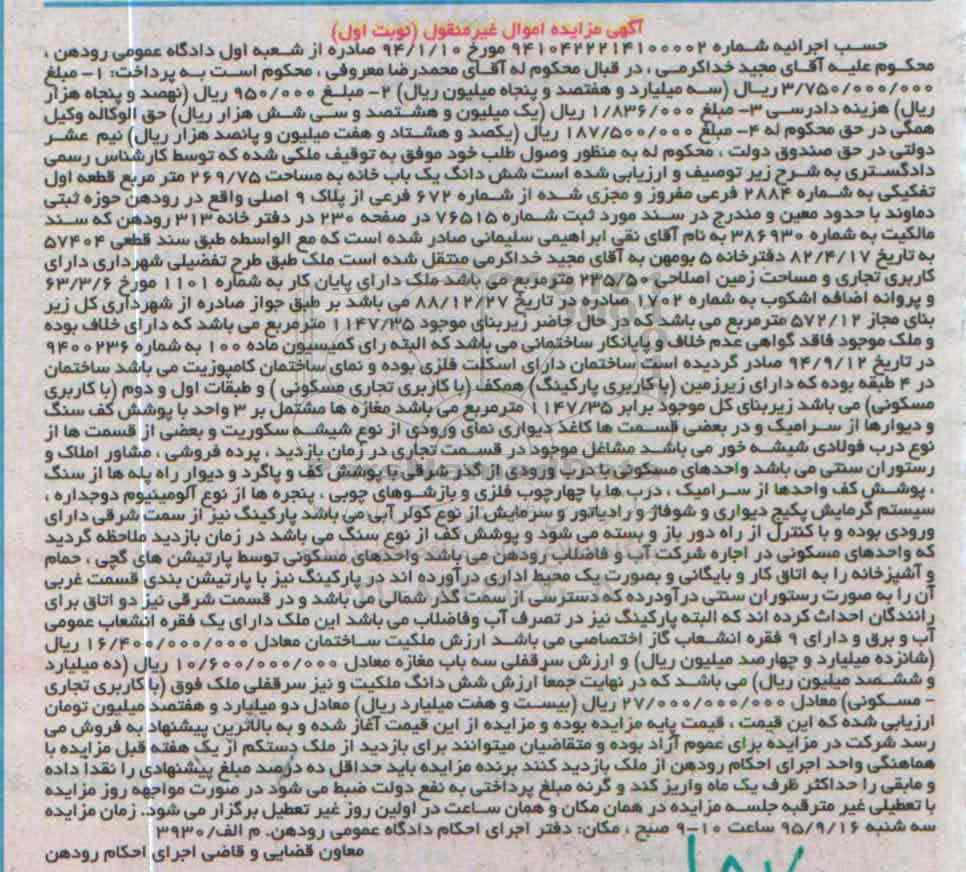 آگهی مزایده اموال غیرمنقول (نوبت اول)
حسب اجرائیه شماره ۹۴۱۰۴۲۲۲۱۴۱۰۰۰۰۲ مورخ ۹۴/۱/۱۰ صادره از شعبه اول دادگاه عمومی رودهن ،
محکوم علیه آقای مجید خداکرمی ، در قبال محکوم له آقای محمدرضا معروفی ، محکوم است به پرداخت: ۱- مبلغ
۳/۷۵۰/۰۰۰/۰۰۰ ریال (سه میلیارد و هفتصد و پنجاه میلیون ریال) ۲- مبلغ ۹۵۰/۰۰۰ ریال (نهصد و پنجاه هزار
ریال) هزینه دادرسی ۳- مبلغ ۱/۸۳۶/۰۰۰ ریال (یک میلیون و هشتصد و سی شش هزار ریال) حق الوکاله وکیل
همگی در حق محکوم له ۴- مبلغ ۱۸۷/۵۰۰/۰۰۰ ریال (یکصد و هشتاد و هفت میلیون و پانصد هزار ریال) نیم عشر
دولتی در حق صندوق دولت ، محکوم له به منظور وصول طلب خود موفق به توقیف ملکی شده که توسط کارشناس رسمی
دادگستری به شرح زیر توصیف و ارزیابی شده است شش دانگ یک باب خانه به مساحت ۲۶۹/۷۵ متر مربع قطعه اول
تفکیکی به شماره ۲۸۸۴ فرعی مفروز و مجزی شده از شماره ۶۷۲ فرعی از پلاک ۹ اصلی واقع در رودهن حوزه ثبتی
دماوند با حدود معین و مندرج در سند مورد ثبت شماره ۷۶۵۱۵ در صفحه ۲۳۰ در دفتر خانه ۳۱۳ رودهن که سند
مالکیت به شماره ۳۸۶۹۳۰ به نام آقای نقی ابراهیمی سلیمانی صادر شده است که مع الواسطه طبق سند قطعی ۵۷۴۰۴
به تاریخ ۸۲/۴/۱۷ دفترخانه ۵ بومهن به آقای مجید خداکرمی منتقل شده است ملک طبق طرح تفضیلی شهرداری دارای
کاربری تجاری و مساحت زمین اصلاحی ۲۳۵/۵۰ مترمربع می باشد ملک دارای پایان کار به شماره ۱۱۰۱ مورخ ۶۳/۳/۶
و پروانه اضافه اشکوب به شماره ۱۷۰۲ صادره در تاریخ ۸۸/۱۲/۲۷ می باشد بر طبق جواز صادره از شهرداری کل زیر
بنای مجاز ۵۷۲/۱۲ مترمربع می باشد که در حال حاضر زیربنای موجود ۱۱۴۷/۳۵ مترمربع می باشد که دارای خلاف بوده
و ملک موجود فاقد گواهی عدم خلاف و پایانکار ساختمانی می باشد که البته رای کمیسیون ماده ۱۰۰ به شماره ۹۴۰۰۲۳۶
در تاریخ ۹۴/۹/۱۲ صادر گردیده است ساختمان دارای اسکلت فلزی بوده و نمای ساختمان کامپوزیت می باشد ساختمان
در ۴ طبقه بوده که دارای زیرزمین (با کاربری پارکینگ) همکف (با کاربری تجاری مسکونی ) و طبقات اول و دوم (با کاربری
مسکونی) می باشد زیربنای کل موجود برابر ۱۱۴۷/۳۵ مترمربع می باشد مغازه ها مشتمل بر ۳ واحد با پوشش کف سنگ
و دیوارها از سرامیک و در بعضی قسمت ها کاغذ دیواری نمای ورودی از نوع شیشه سکوریت و بعضی از قسمت ها از
نوع درب فولادی شیشه خور می باشد مشاغل موجود در قسمت تجاری در زمان بازدید ، پرده فروشی ، مشاور املاک و
رستوران سنتی می باشد واحدهای مسکونی با درب ورودی از گذر شرقی با پوشش کف و پاگرد و دیوار راه پله ها از سنگ
، پوشش کف واحدها از سرامیک ، درب ها با چهارچوب فلزی و بازشوهای چوبی ، پنجره ها از نوع آلومینیوم دوجداره ،
سیستم گرمایش پکیج دیواری و شوفاژ و رادیاتور و سرمایش از نوع کولر آبی می باشد پارکینگ نیز از سمت شرقی دارای
ورودی بوده و با کنترل از راه دور باز و بسته می شود و پوشش کف از نوع سنگ می باشد در زمان بازدید ملاحظه گردید
که واحدهای مسکونی در اجاره شرکت آب و فاضلاب رودهن می باشد واحدهای مسکونی توسط پارتیشن های گچی ، حمام
و آشپزخانه را به اتاق کار و بایگانی و بصورت یک محیط اداری درآورده اند در پارکینگ نیز با پارتیشن بندی قسمت غربی
آن را به صورت رستوران سنتی درآودرده که دسترسی از سمت گذر شمالی می باشد و در قسمت شرقی نیز دو اتاق برای
رانندگان احداث کرده اند که البته پارکینگ نیز در تصرف آب وفاضلاب می باشد این ملک دارای یک فقره انشعاب عمومی
آب و برق و دارای ۹ فقره انشعاب گاز اختصاصی می باشد ارزش ملکیت ساختمان معادل ۱۶/۴۰۰/۰۰۰/۰۰۰ ریال
(شانزده میلیارد و چهارصد میلیون ریال) و ارزش سرقفلی سه باب مغازه معادل ۱۰/۶۰۰/۰۰۰/۰۰۰ ریال (ده میلیارد
و ششصد میلیون ریال) می باشد که در نهایت جمعا ارزش شش دانگ ملکیت و نیز سرقفلی ملک فوق (با کاربری تجاری
- مسکونی) معادل ۲۷/۰۰۰/۰۰۰/۰۰۰ ریال (بیست و هفت میلیارد ریال) معادل دو میلیارد و هفتصد میلیون تومان
ارزیابی شده که این قیمت ، قیمت پایه مزایده بوده و مزایده از این قیمت آغاز شده و به بالاترین پیشنهاد به فروش می
رسد شرکت در مزایده برای عموم آزاد بوده و متقاضیان میتوانند برای بازدید از ملک دستکم از یک هفته قبل مزایده با
هماهنگی واحد اجرای احکام رودهن از ملک بازدید کنند برنده مزایده باید حداقل ده درصد مبلغ پیشنهادی را نقدا داده
و مابقی را حداکثر ظرف یک ماه واریز کند و گرنه مبلغ پرداختی به نفع دولت ضبط می شود در صورت مواجهه روز مزایده
با تعطیلی غیر مترقبه جلسه مزایده در همان مکان و همان ساعت در اولین روز غیر تعطیل برگزار می شود. زمان مزایده
سه شنبه ۹۵/۹/۱۶ ساعت ۱۰-۹ صبح ، مکان: دفتر اجرای احکام دادگاه عمومی رودهن. م الف/۳۹۳۰
معاون قضایی و قاضی اجرای احکام رودهن